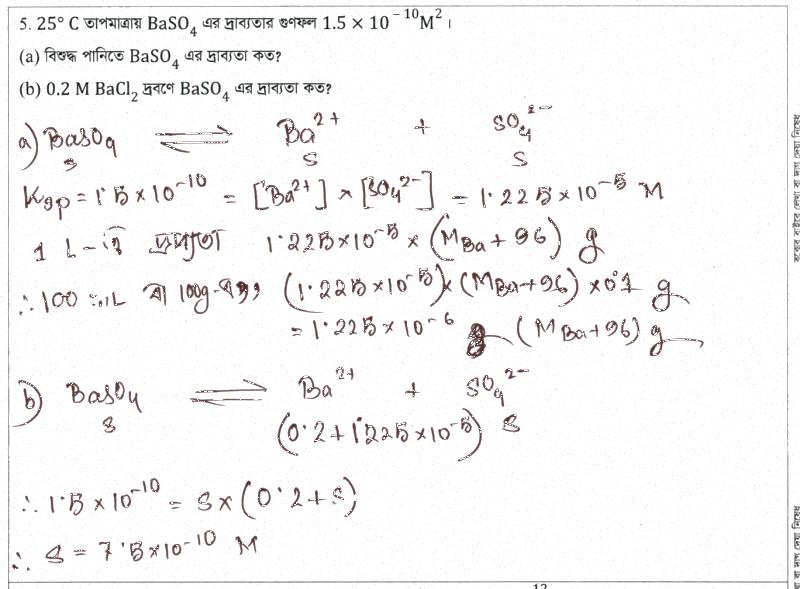 5. 25° C তাপমাত্রায় BaSO₄ এর দ্রাব্যতার গুণফল 1.5 × 10⁻¹⁰M² ।
(a) বিশুদ্ধ পানিতে BaSO₄ এর দ্রাব্যতা কত?
(b) 0.2 M BaCl₂ দ্রবণে BaSO₄ এর দ্রাব্যতা কত?
a) BaSO₄ ⇌ Ba²⁺ + SO₄²⁻
S S S
Ksp = 1.5 × 10⁻¹⁰ = [Ba²⁺] × [SO₄²⁻] = 1.225 × 10⁻⁵ M
1 L-এ দ্রাব্যতা 1.225×10⁻⁵ × (M_Ba + 96) g
∴ 100 mL বা 100g-এ (1.225×10⁻⁵)×(M_Ba+96) ×0.1 g
= 1.225 × 10⁻⁶ (M_Ba+96) g
b) BaSO₄ ⇌ Ba²⁺ + SO₄²⁻
S (0.2+1.225×10⁻⁵) S
∴ 1.5 × 10⁻¹⁰ = S × (0.2+S)
∴ S = 7.5×10⁻¹⁰ M
12